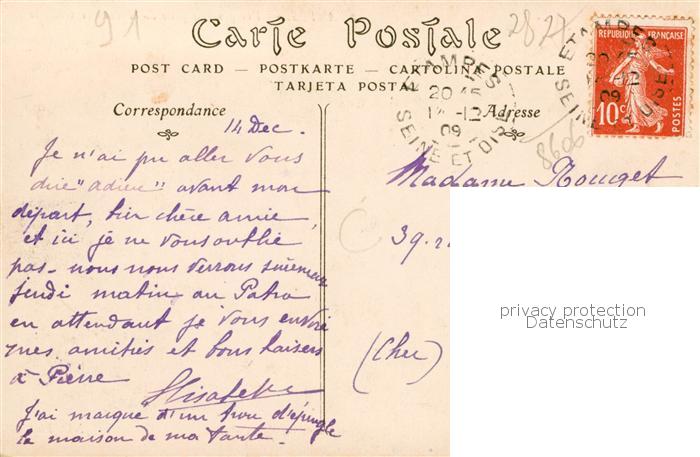 91
2827
Carte Postale
POST CARD — POSTKARTE — CARTOLINA POSTALE
TARJETA POSTAL
Correspondance
Adresse
ETAMPES
2045
14-12
09
SEINE ET OISE
REPUBLIQUE FRANÇAISE
10c
POSTES
ETAMPES
12
09
SEINE
8606
14 Dec.
Je n'ai pu aller vous
dire "adieu" avant mon
départ, bien chère amie,
et ici je ne vous oublie
pas - nous nous verrons sûrement
jeudi matin au Patro
en attendant je vous envoie
mes amitiés et bons baisers
à Pierre
Elisabeth
J'ai marqué d'un trou d'épingle
la maison de ma tante.
Madame Rouget
39
(Cher)
privacy protection
Datenschutz